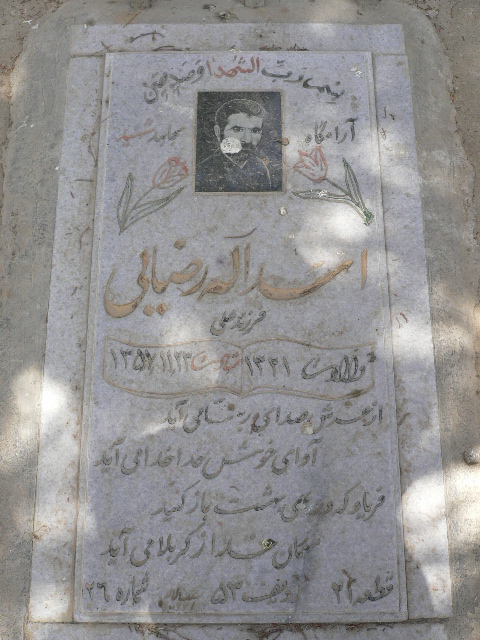 بنام رب الشهدا و صدیقین
آرامگاه
مجاهد شهید
اسداله رضیائی
فرزند علی
ولادت ۱۳۳۱ شهادت ۱۳۵۷/۱۱/۲۳
از عرش صدای ربنا می آید
آوای خوش خدا خدا می آید
فریاد که درهای بهشت باز کنید
مهمان خدا از کربلا می آید
قطعه ۲۱ ردیف ۵۳ شماره ۲۶